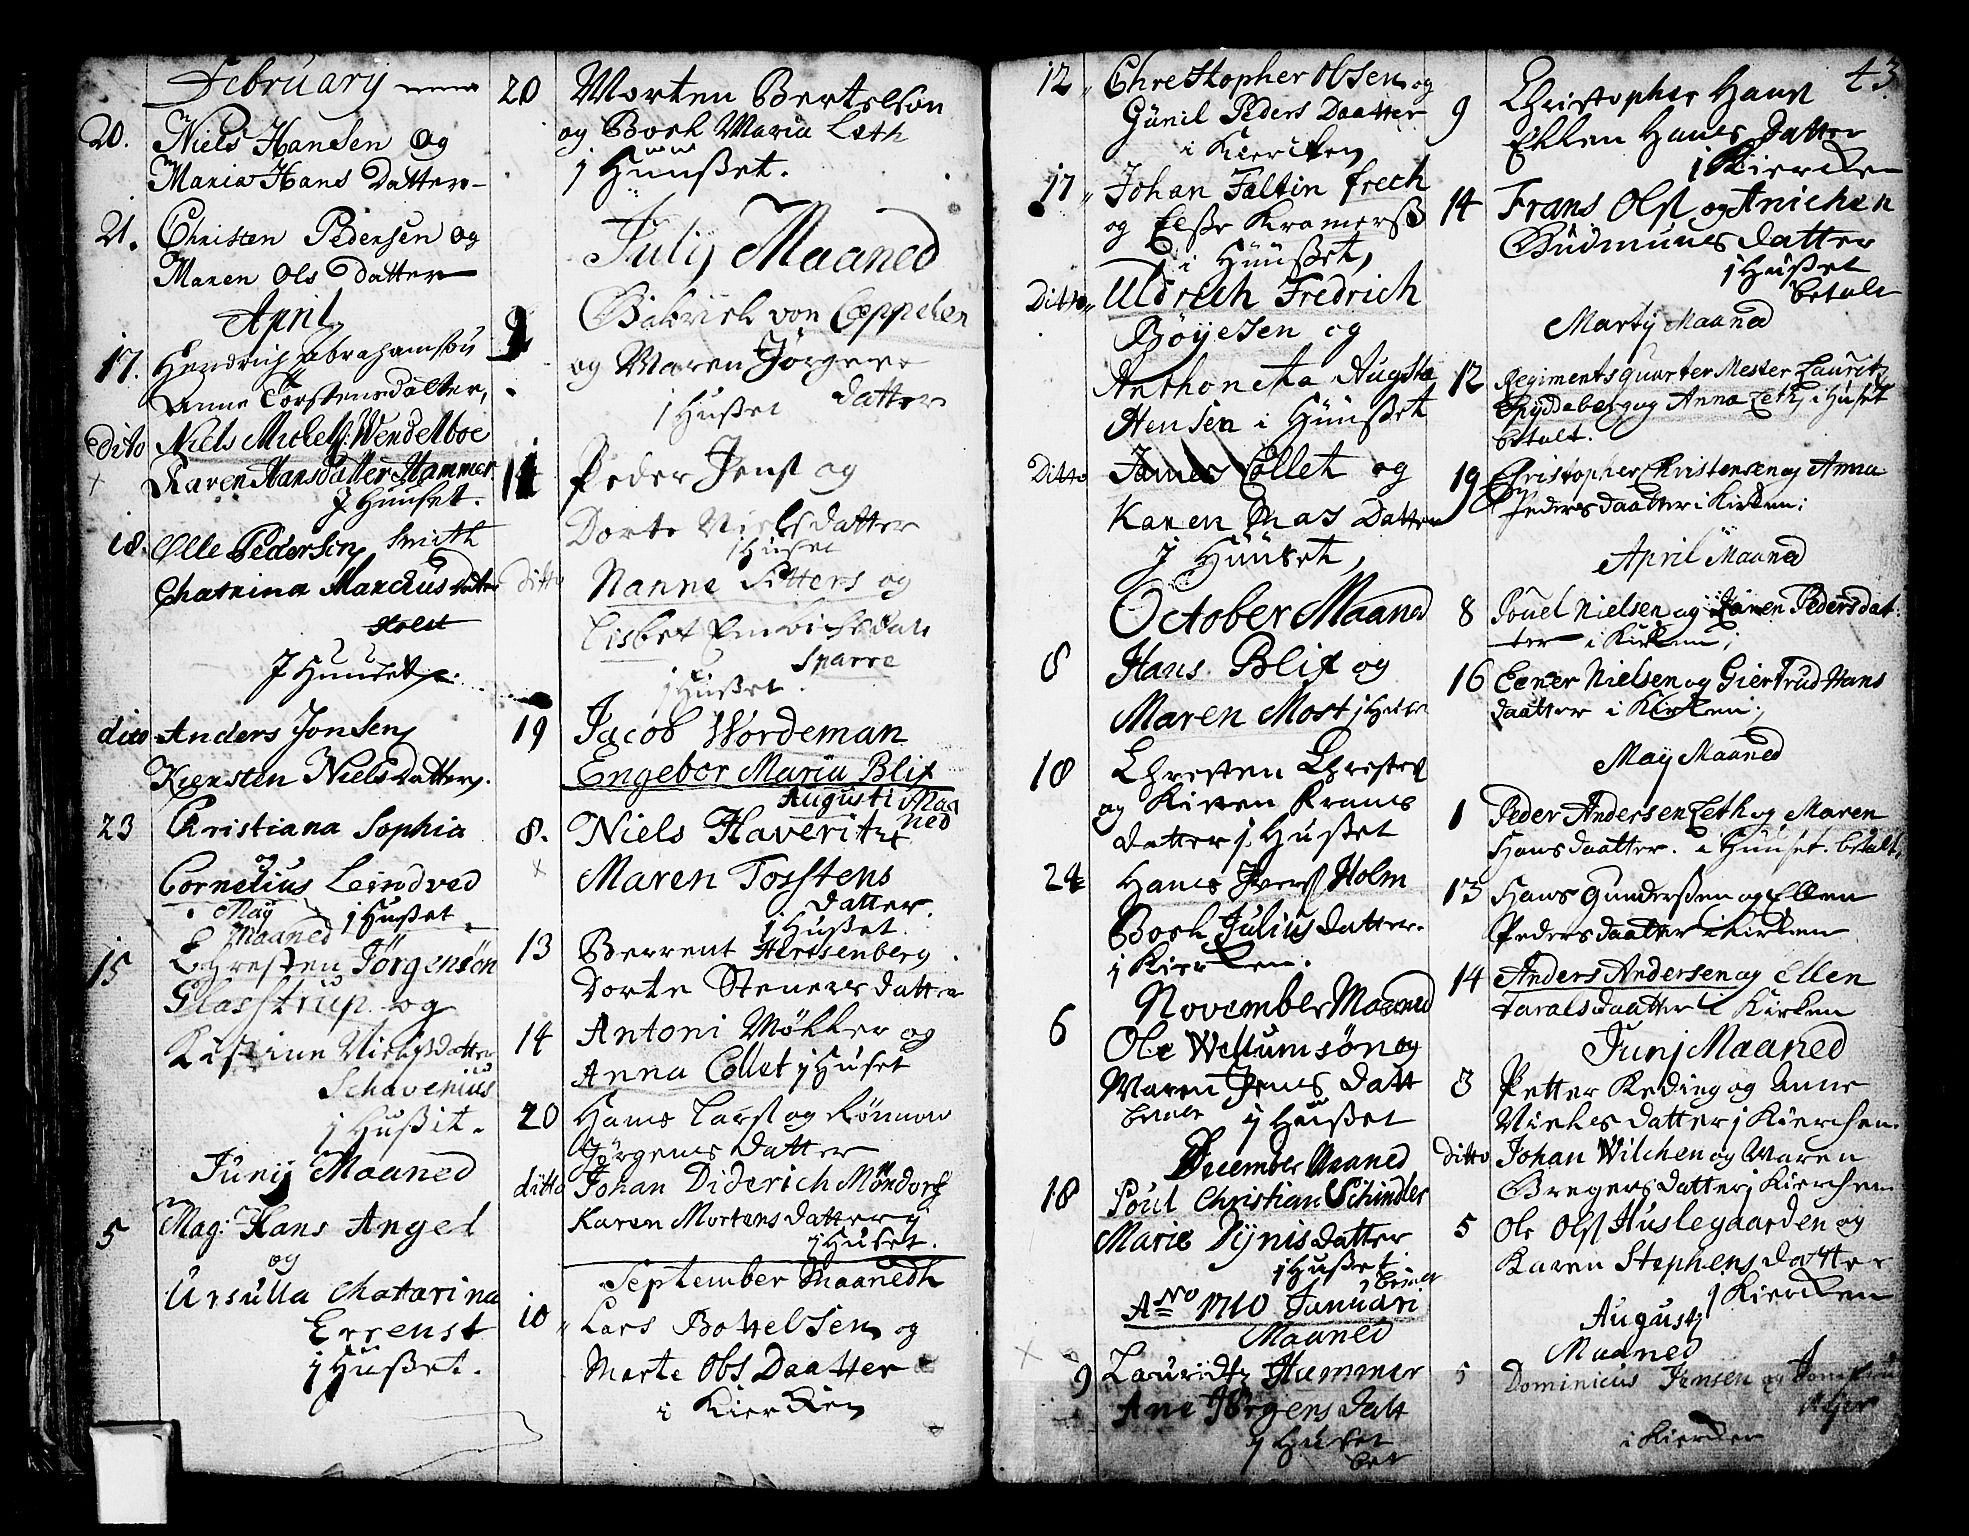 February
20. Niels Hansen og
Maria Hans Datter
21. Christen Pedersen og
Maren Ols Datter
April
17. Hendrich Abrahamsøn
Anne Torstensdatter,
dito Niels Michelss: Wendelboe
Karen Hansdatter Hammer
J Huuset.
18. Olle Pedersen Smith
Chatrina Marckus datter
J Huuset
dito Anders Jonsen
Kiersten Niels datter.
23 Christiana Sophia
og
Cornelius Leindved
j Husset
May
Maaned
15 Chresten Jørgensøn
Glasstrup og
Kistine Nielss datter
Schavenius
j Hussit.
Junij Maaned
5 Mag: Hans Angel
og
Ursulla Chatarina
Errenst
j Husset.
20 Morten Bertelson
og Boel Maria Leth
j Huusset.
Julij Maaned
9 Gabriel von Cappelen
og Maren Jørgens
datter
j Husset
11 Peder Jenss og
Dorte Nielsdatter
j Huset
Ditto Nanne Sitters og
Lisbet
Sparre
j Husset.
19 Jacob Wordeman
Engebor Maria Blix
Augusti Maa
ned
8. Niels Haveritz
Maren Tosstens
datter.
j Husset.
13 Berrent Hertsenberg
Dorte Steners datter
14 Antoni Møller og
Anna Collet j Huset
20 Hans Larss og Rønnow
Jörgens datter
ditto Johan Diderich Møndorf
Karen Mortensdatter
j Huset.
September Maanedh
10 Lars Bottelsen og
Marte Ols Daatter
i Kiercken
12 Chrestopher Olsen og
Gunil Peders Daatter
i Kiercken
17 Johan Faltin frech
og Else Kramerss
i Huusset,
Ditto Uldrich Fredrich
Böyesen og
Anthoneta Augsta
Hensen i Huusset
Ditto James Collet og
Karen Leas Datter
J Huuset,
October Maaned
8 Hans Blix og
Maren Most j Huset
18 Christen Christess
og Kirren Frans
datter j Husset
24 Hans Iverss Holm
Boel Julius datter.
j Kiercken.
November Maaned
6 Ole Wellumsøn og
Maren Jens Datt
j Husset
December Maaned
18 Poul Christian Schindler
Marie Dijnis datter
j Husset
Ano 1710 Januari
Maaned
9 Lauridtz Hammer
Ane Jørgens datt
j Huset
bet
43
9 Christopher Hanss
Ellen Hans datter
j Kiercken
14 Frans Olss og Anichen
Gudmuns datter
j Husset
betalt
Martij Maaned
12 Regimentsquarter Mester Lauritz
Spydeberg og Anna Leth, i Huset
betalt.
19 Christopher Christensen og Anna
Peders daatter i Kirken;
April Maaned
8 Pouel Nielsen og Karen Pedersdat-
ter i Kirken;
16 Eener Nielsen og Giertrud Hans
daatter i Kirken;
May Maaned
1 Peder Andersen Leth og Maren
Hansdaatter. i Huuset. betalt,
13 Hans Gundersen og Ellen
Pedersdaatter i Kirken
14 Anders Andersen og Ellen
Taralsdaatter i Kirken
Junj Maaned
3 Petter Keding og Anne
Niels datter j Kierchen
ditto Johan Wilchen og Maren
Bregers datter j Kierchen
5 Ole Olss Huslegaarden og
Karen Stephens datter
j Kiercken
Augustj
Maaned
5 Dominicus Jensen og
i Kiercken